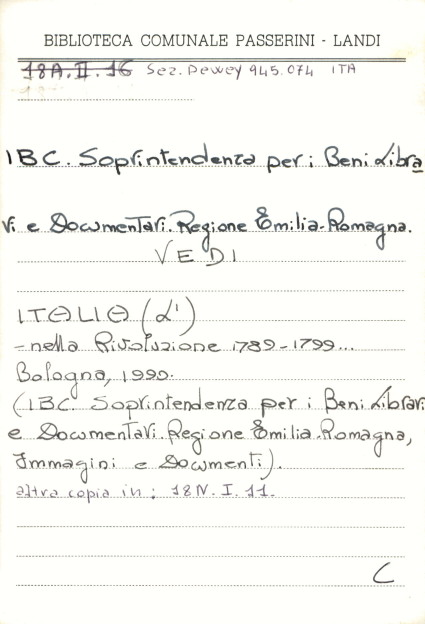 BIBLIOTECA COMUNALE PASSERINI - LANDI
18A.II.16 Sez. Dewey 945.074 ITA
IBC. Soprintendenza per i Beni Libra
ri e Documentari. Regione Emilia-Romagna.
VEDI
ITALIA (L')
- nella Rivoluzione 1789-1799...
Bologna, 1990.
(IBC. Soprintendenza per i Beni Librari
e Documentari. Regione Emilia-Romagna,
Immagini e Documenti).
altra copia in: 18N.I.11.
C